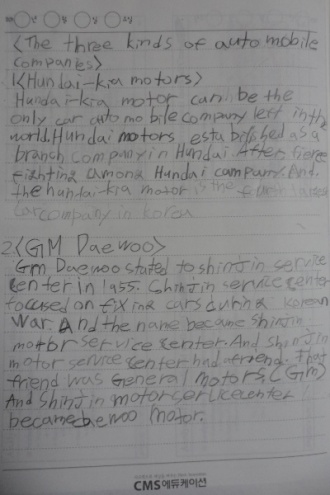 <The three kinds of auto mobile
companies>
1<Hundai-kia motors>
Hundai-kia motor can be the
only car auto mobile company left in the
world. Hundai motors established as a
branch company in Hundai. After fierce
fighting among Hundai campany. And,
the hundai-kia motor is the
car company in korea
2.<GM Daewoo>
Gm Daewoo stated to shinjin service
center in 1955. Shinjin service center
focused on fixing cars during korean
War. And the name became Shinjin
motor service center. And Shinjin
motor service center had friend. That
friend was General Motors, (Gm)
And shinjin motor service center
became daewoo motor.
CMS에듀케이션